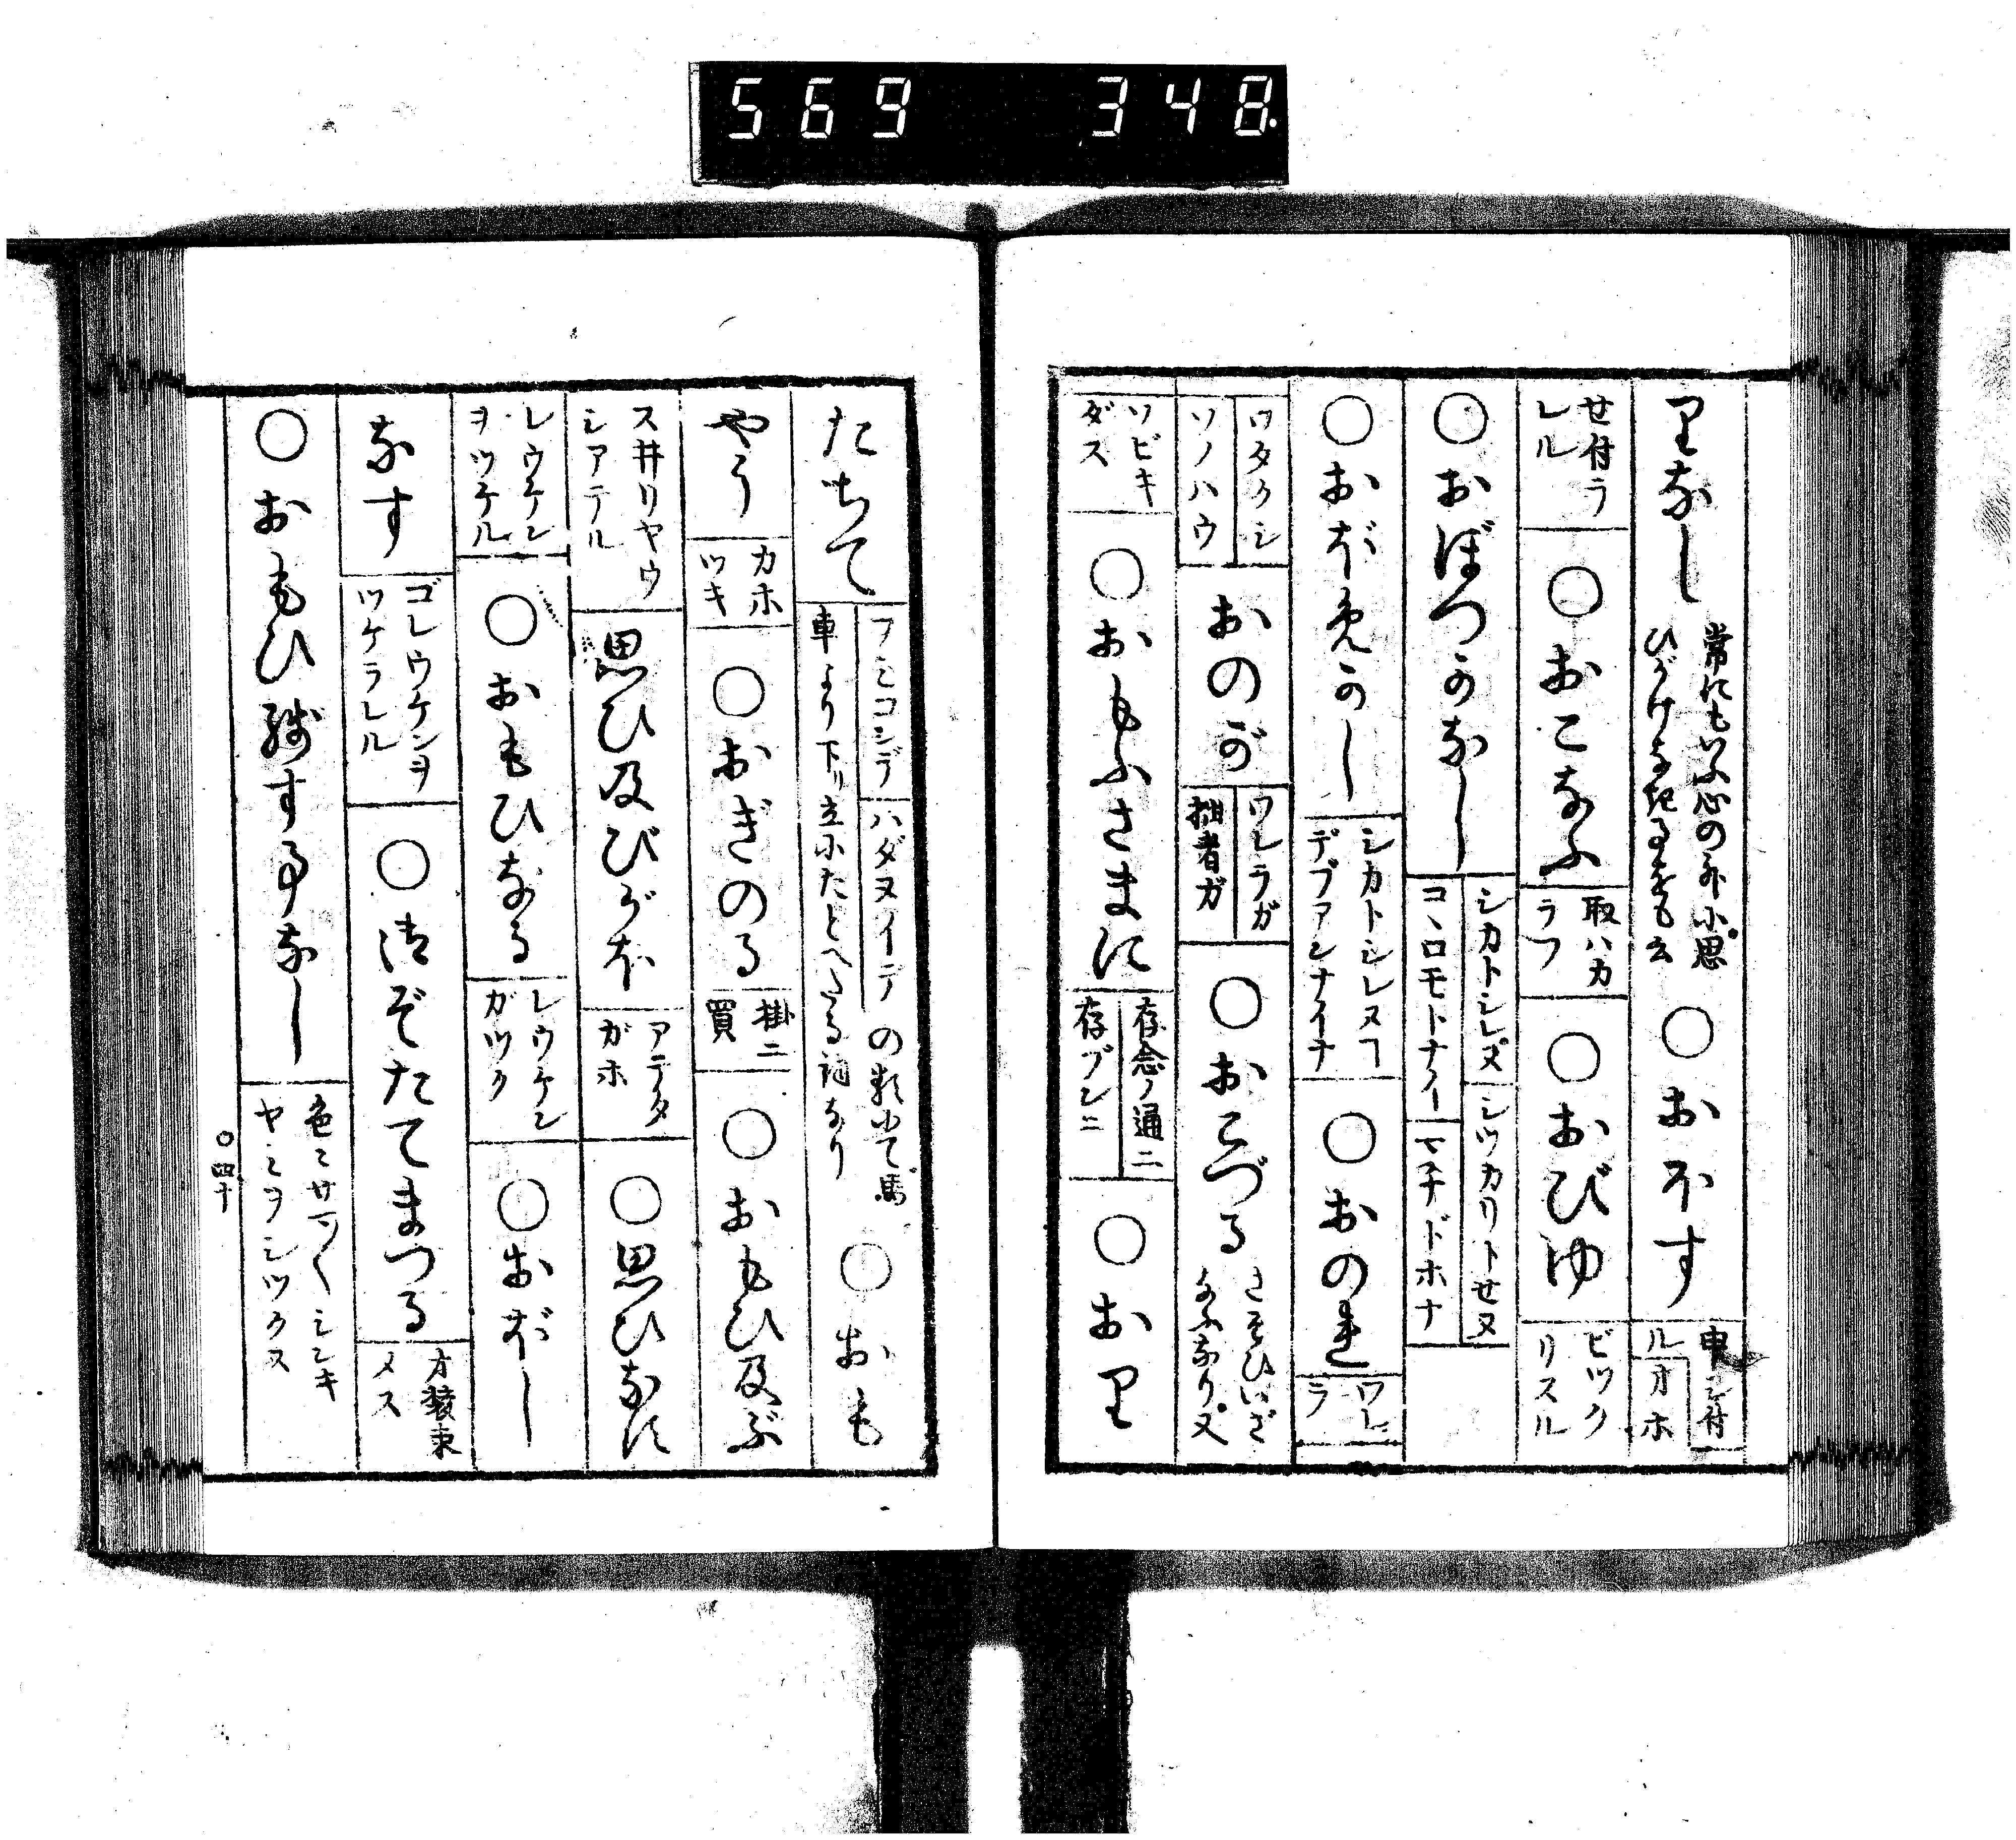 569 348
りなし 常にもいふ心の外に思
ひがけなき事をも云 ○おほす 申シ付
ル オホ
せ付ラ
レル ○おこなふ 取ハカ
ラフ ○おびゆ ビツク
リスル
○おぼつかなし シカトシレヌ シツカリトせヌ
コヽロモトナイ マチドホナ
○おぼめかし シカトシレヌコ
デフアンナイナ ○おのれ ワレ
ラ
ワタクシ
ソノハウ おのが ワレラガ
拙者ガ ○おこづる さそひいざ
なふなり又
ソビキ
ダス ○おもふさまに 存念ノ通ニ
存ブンニ ○おり
たちて フミコンデ ハダヌイデ の類にて馬
車より下り立にたとへたる詞なり ○おも
やう カホ
ツキ ○おぎのる 掛ニ
買 ○おもひ及ぶ
ス井リヤウ
シアテル 思ひ及びがほ アテタ
ガホ ○思ひなす
レウケン
ヲツケル ○おもひなる レウケン
ガツク ○おぼし
なす ゴレウケンヲ
ツケラレル ○御ぞたてまつる オ装束
メス
○おもひ残す事なし 色々サマ〴〵シンキ
ヤミヲシツクス
○四十